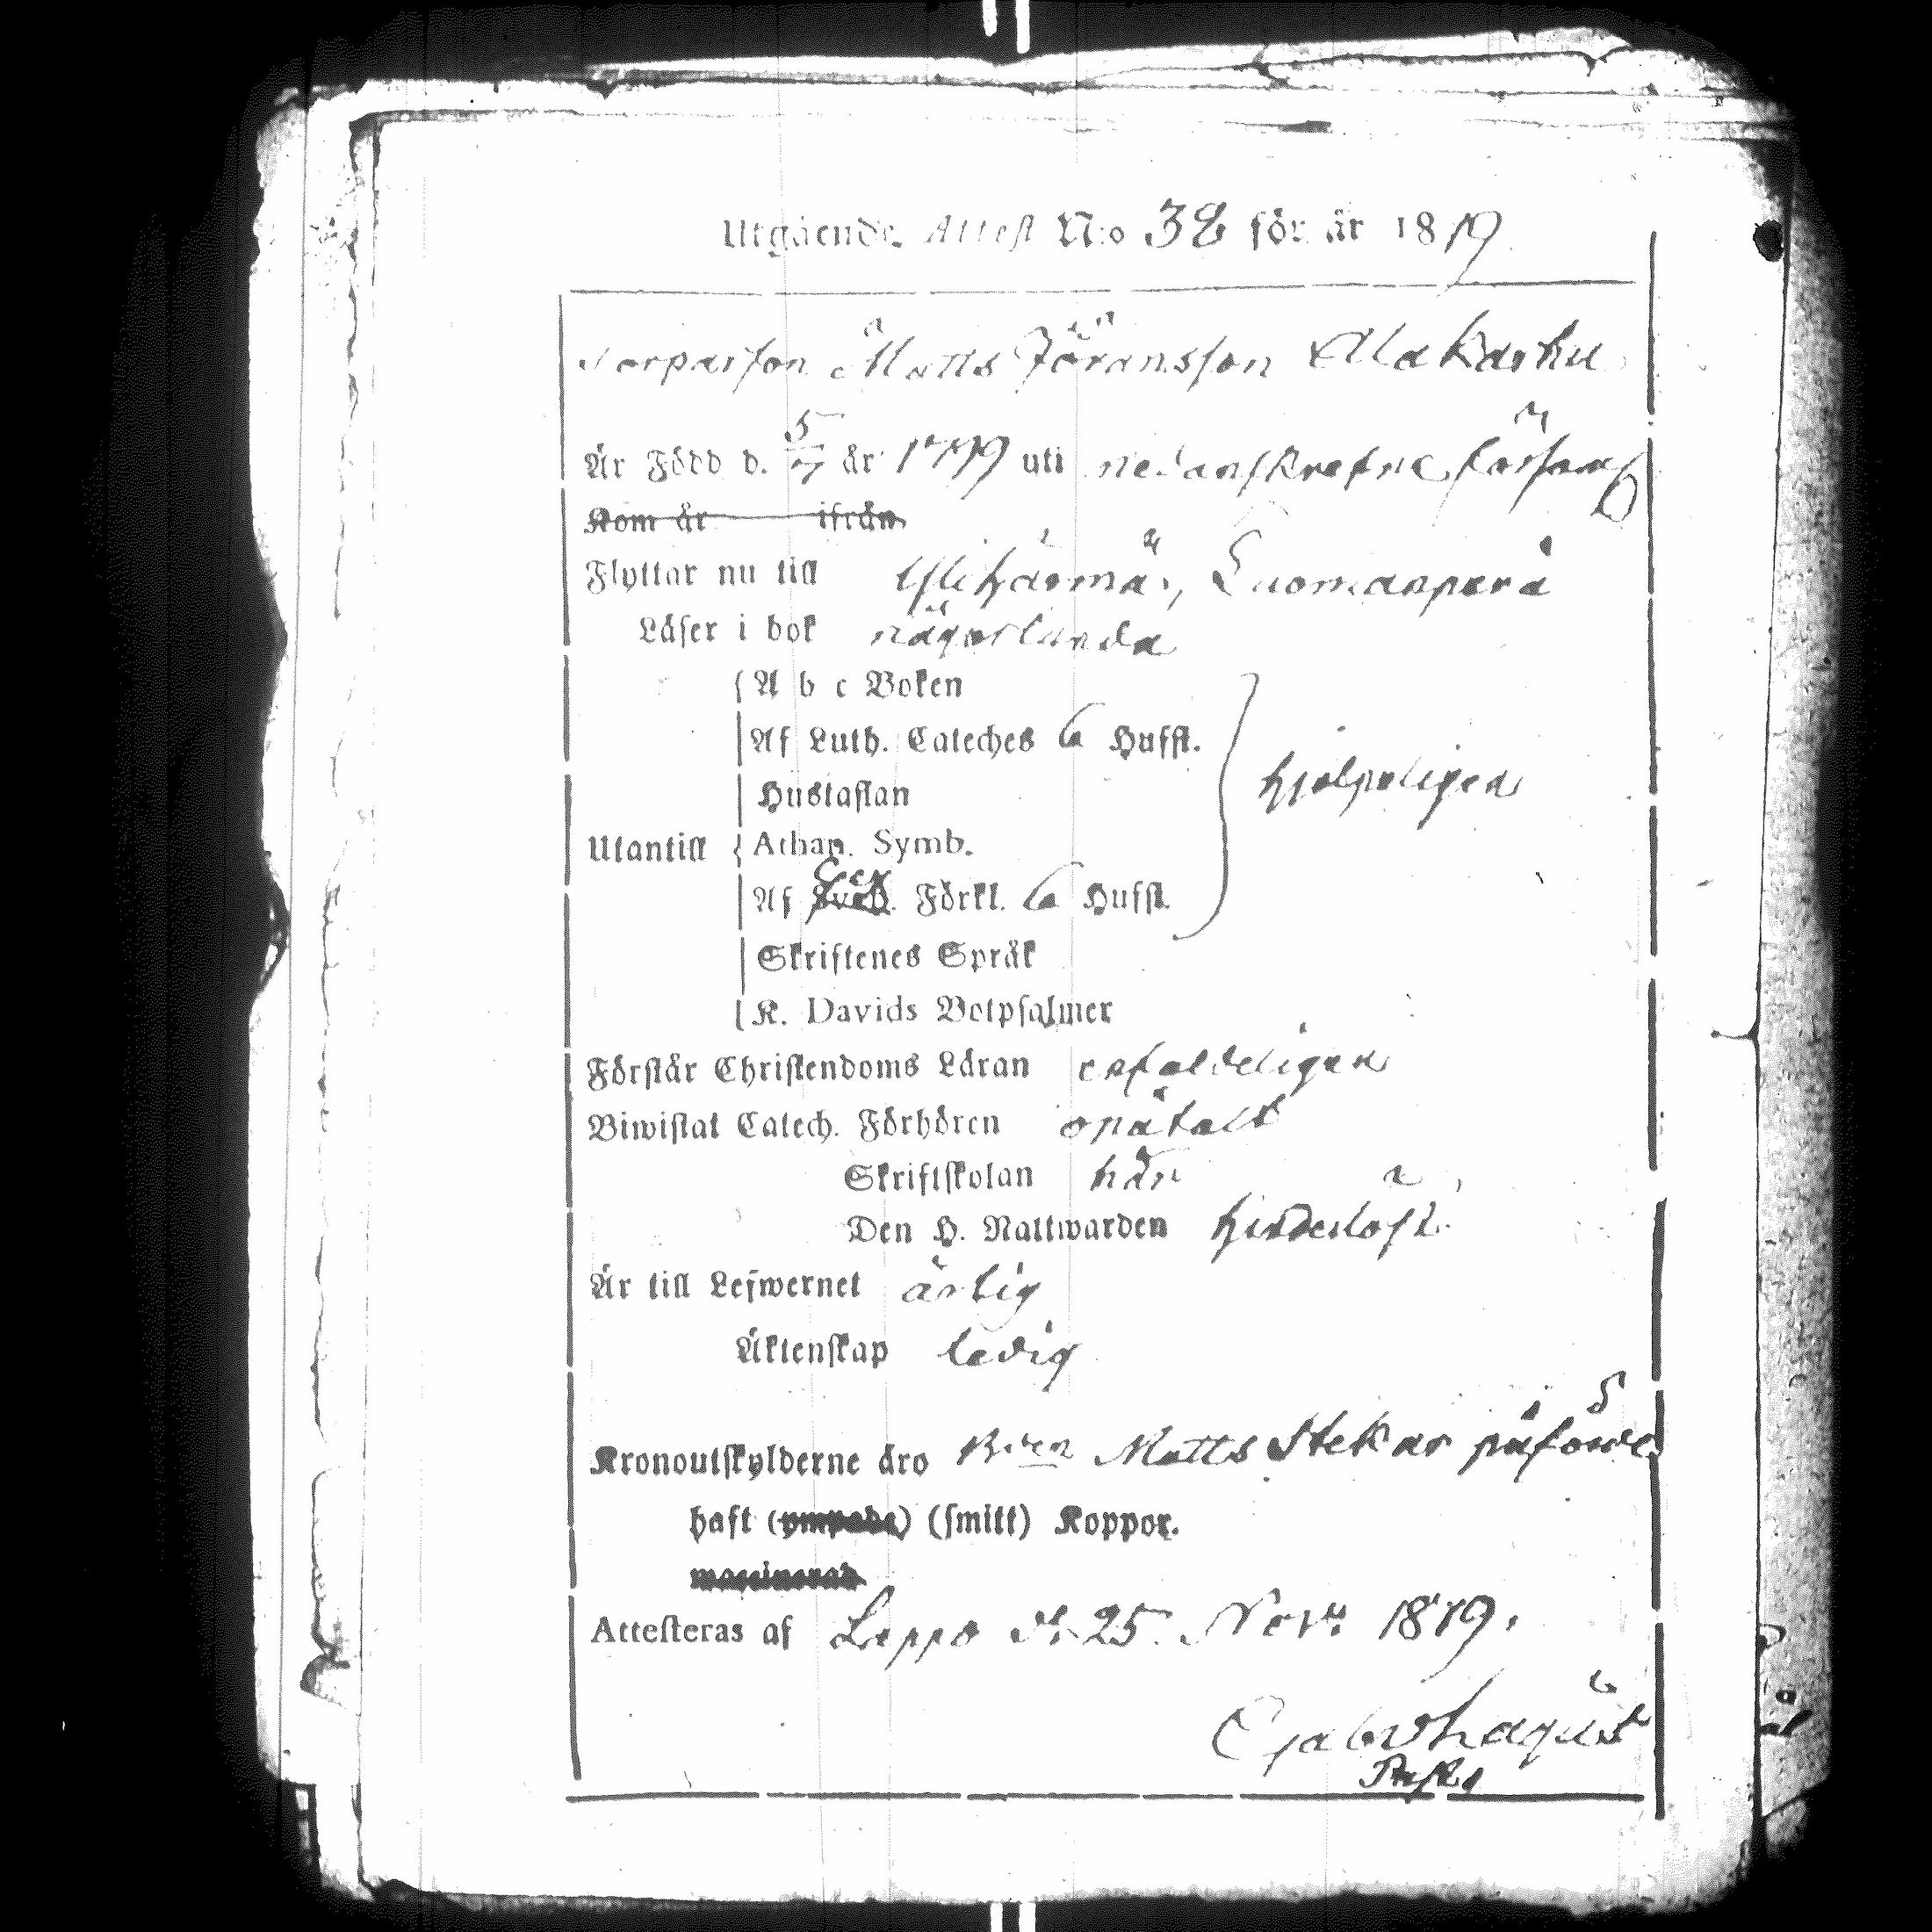 Utgående Attest N:o 32 för år 1819
Torparson Matts Jöransson Ala Karhu
Är Född d. 5/7 år 1799 uti nedanskrefne församl
Kom år ifrån
Flyttar nu till Ylihärmä, Luomanperä
Läser i bok någorlunda
A b c Boken
Af Luth. Cateches 6 Hufst.
Hustaflan
hjelpeligen
Utantill Athan. Symb.
Af Sveb. Förkl. 6 Hufst.
Skriftenes Språk
K. Davids Botpsalmer
Förstår Christendoms Läran enfaldeligen
Biwistat Catech. Förhören opåtalt
Skriftskolan här
Den H. Nattwarden hinderlöst
Är till Lefwernet ärlig
Äktenskap ledig
Kronoutskylderne äro Matts Stekar påförde
haft (ympade) (smitt) Koppor.
vaccinerad
Attesteras af Lappo d. 25 Nov. 1819.